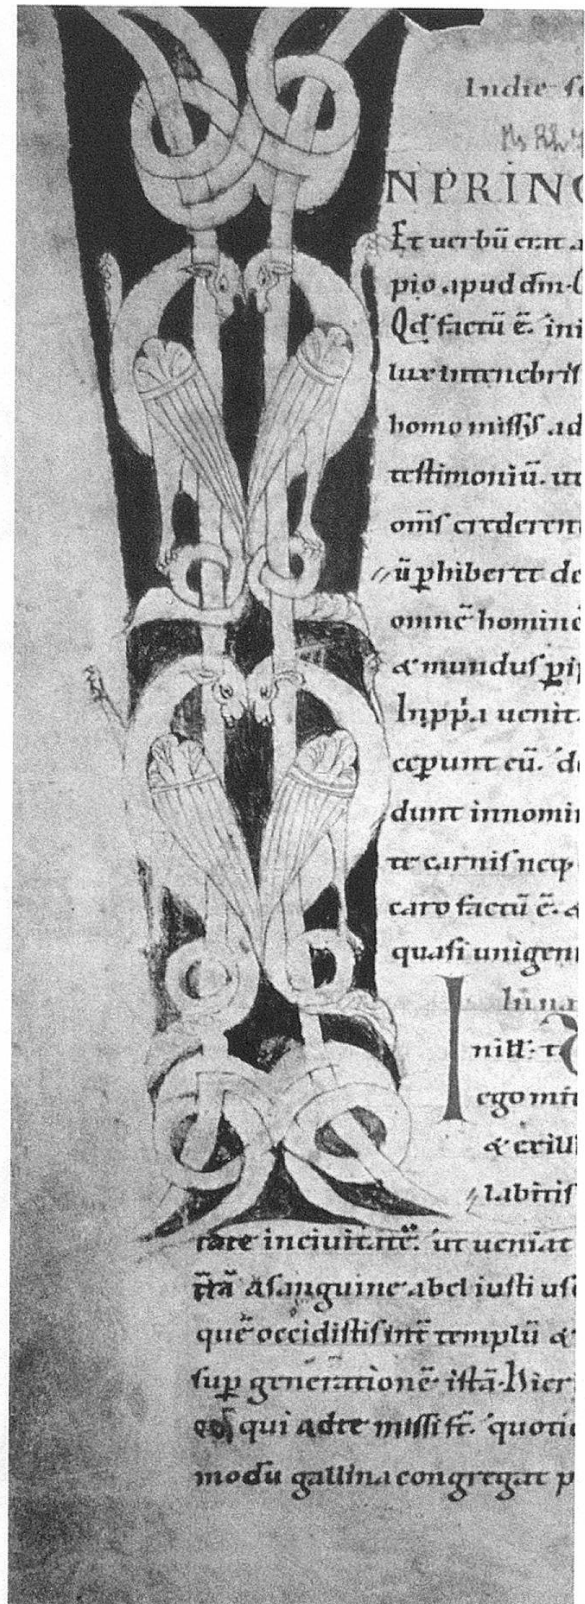 Indie s
NPRINC
Et uerbū erat a
pio apud dm̄·
Qd̄ factū ē. ini
lux intenebris
homo missus ad
testimoniū. ut
om̄s crederent
ū phiberet de
omnē hominē
& mundus p ip
Inppa uenit.
cepunt eū. d
dunt innomi
te carnis neq;
caro factū ē. &
quasi unigeni
In na
nill: t
ego mit
& exilli
labitis
tate inciuitatē. ut ueniat
trā a sanguine abel iusti us
quē occidistis int̄ templū &
sup generationē istā. hier
eos qui adte missi st̄. quotie
modū gallina congregat p